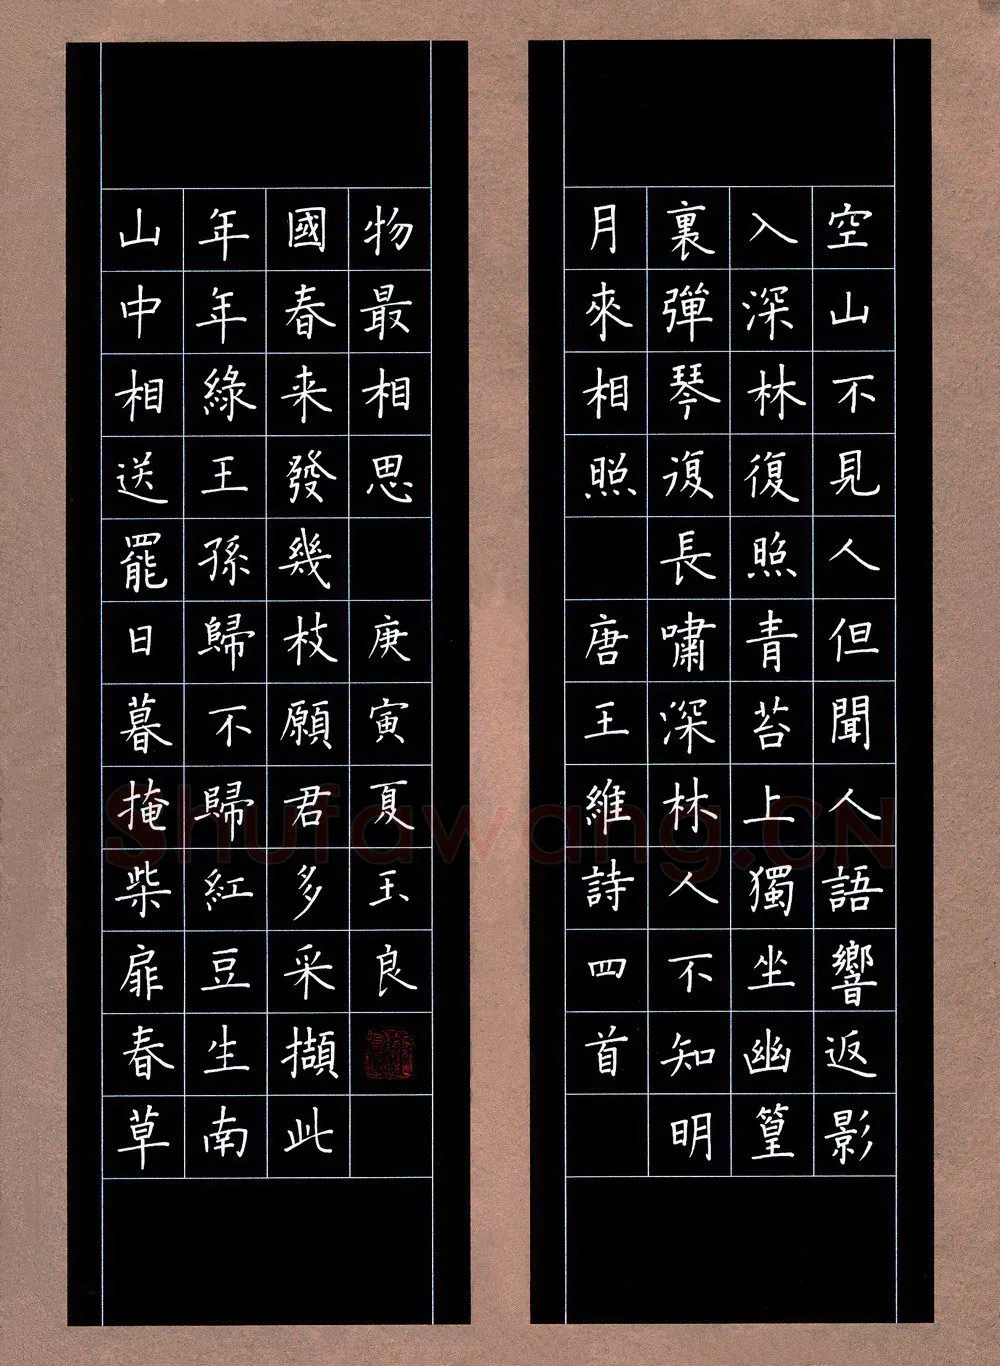 空山不見人但聞人語響返影
入深林復照青苔上獨坐幽篁
裏彈琴復長嘯深林人不知明
月來相照 唐王維詩四首
山中相送罷日暮掩柴扉春草
年年綠王孫歸不歸紅豆生南
國春来發幾枝願君多采擷此
物最相思 庚寅夏玉良
Shufawang.CN